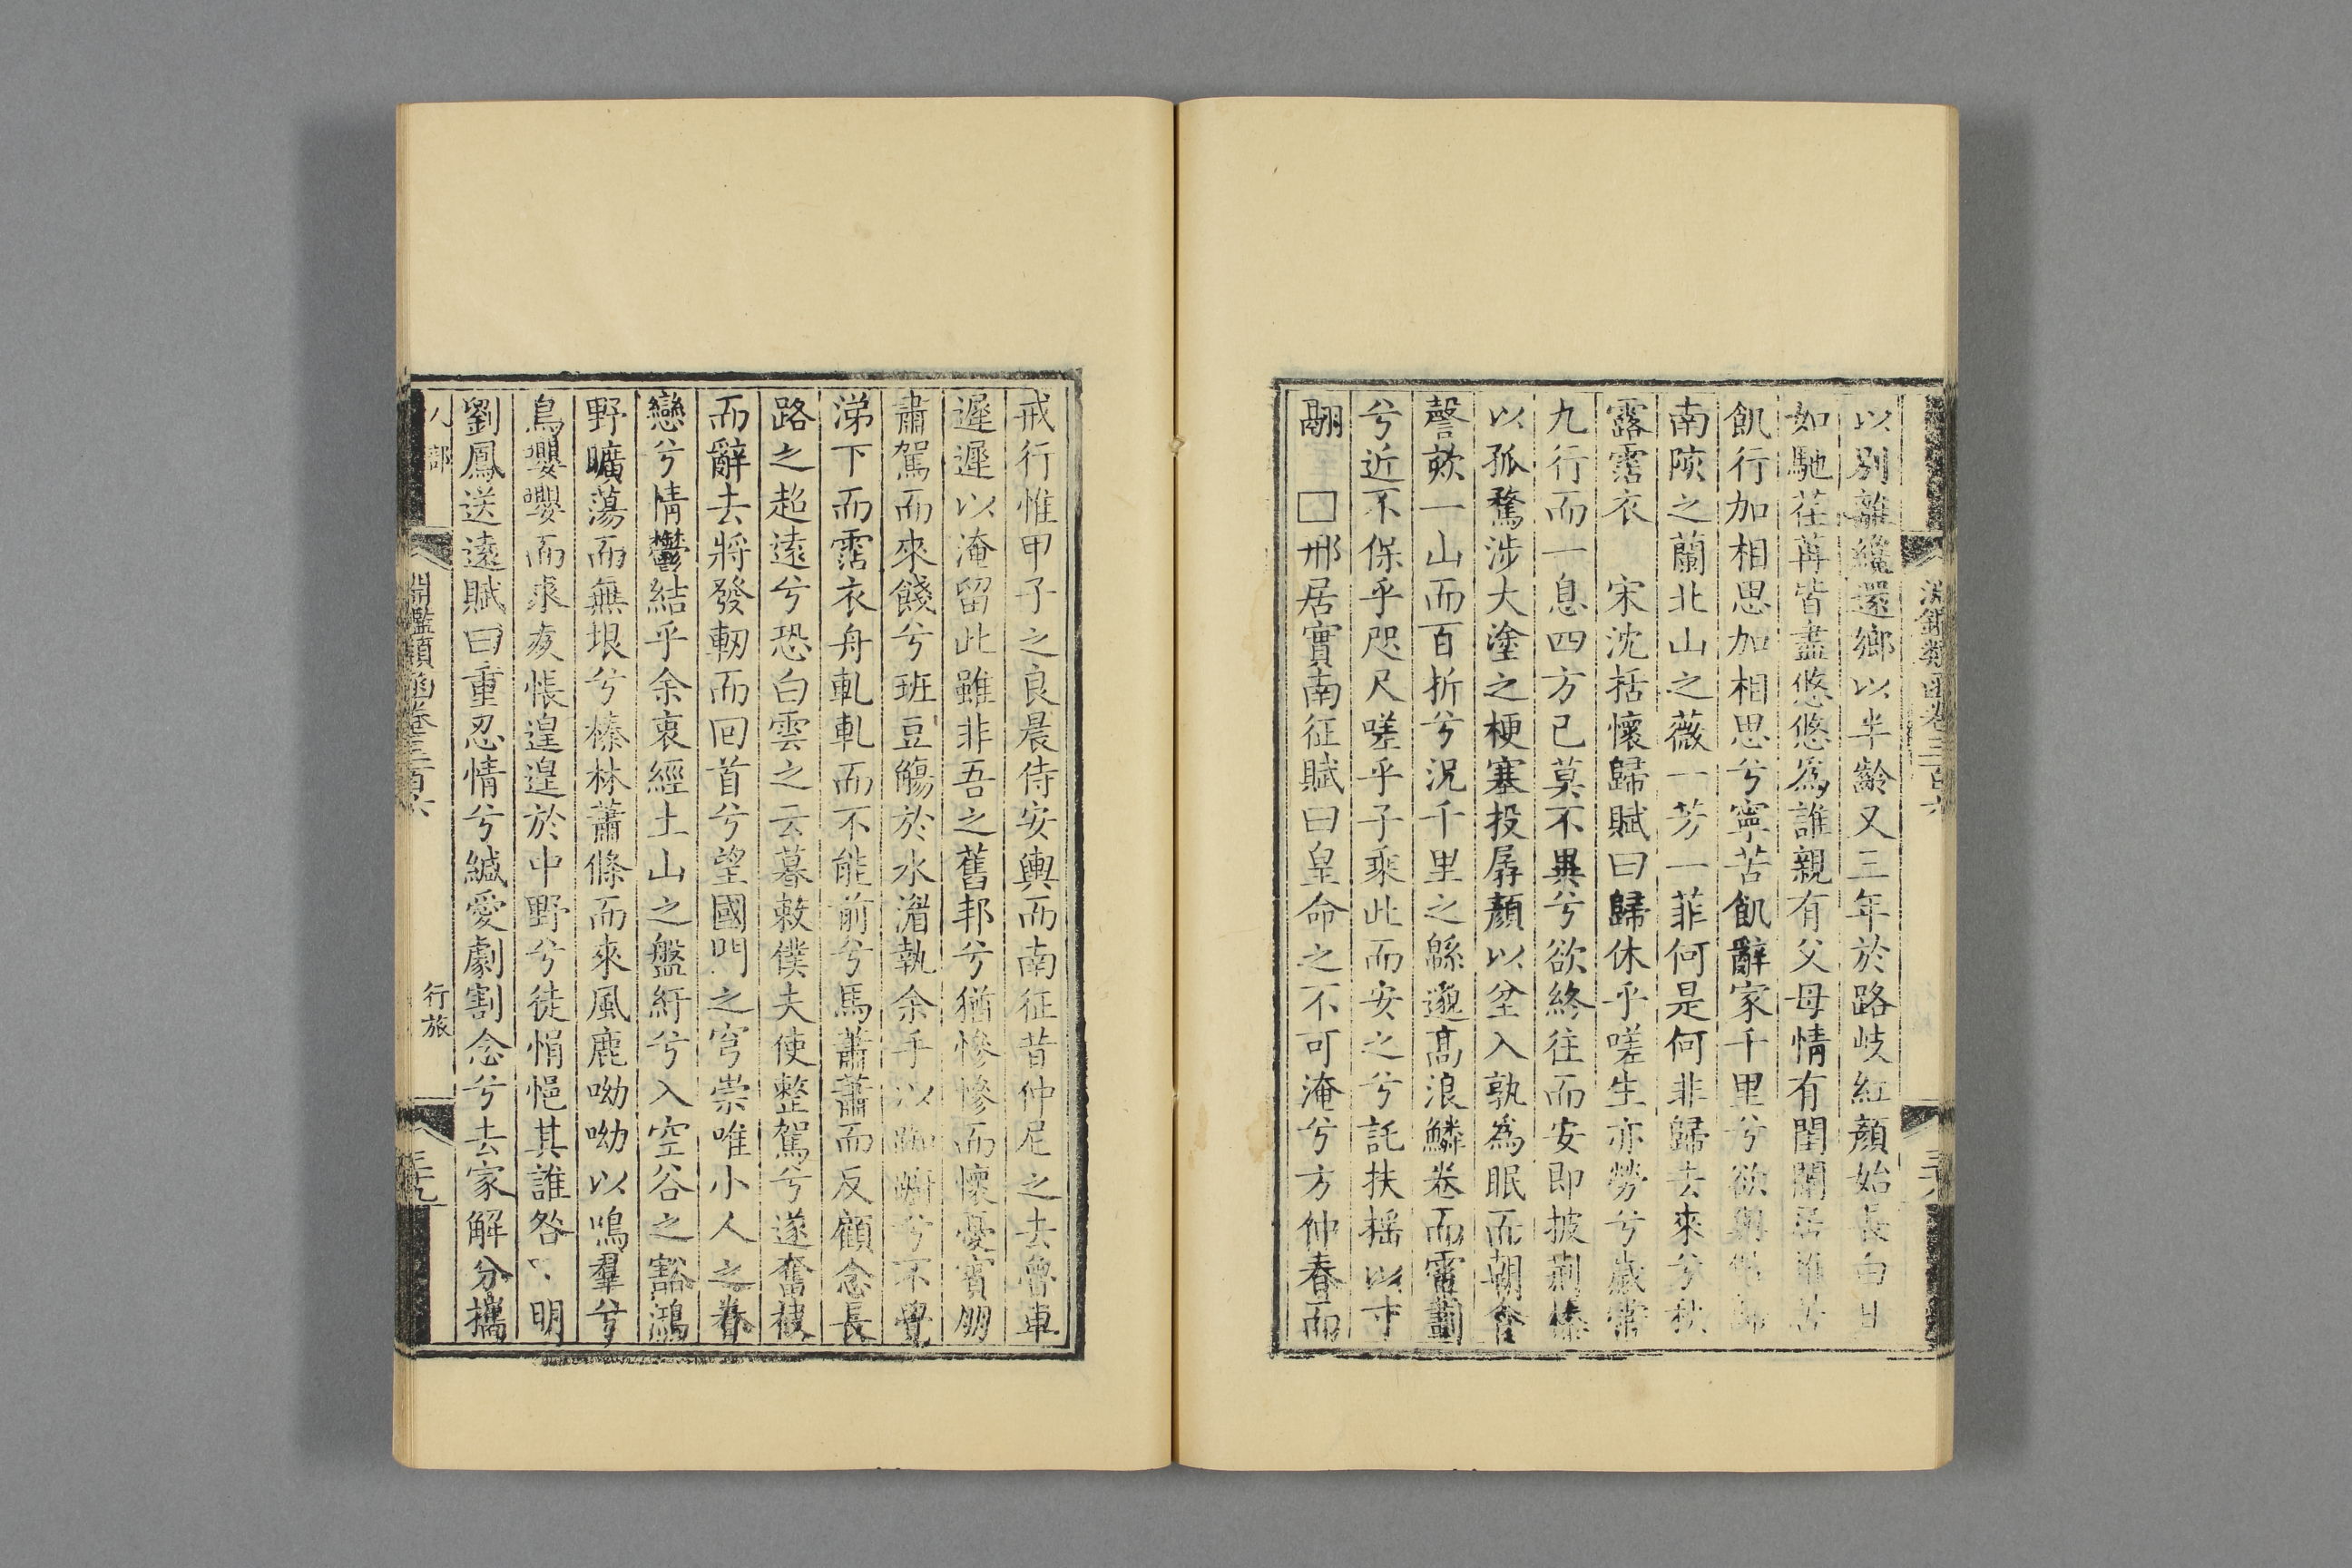 淵鑑類函卷三百六
三十八
以別離纔還鄉以半齡又三年於路岐紅顏始長白日
如馳荏苒皆盡悠悠爲誰親有父母情有閨闈居
飢行加相思加相思兮寧苦飢辭家千里兮欲
南陔之蘭北山之薇一芳一菲何是何非歸去來兮秋
露霑衣　宋沈括懷歸賦曰歸休乎嗟生亦勞兮歲常
九行而一息四方已莫不畢兮欲終往而安即披荆榛
以孤騖涉大塗之梗塞投孱顏以坌入孰爲眠而朝食
謦欬一山而百折兮況千里之緜邈高浪鱗卷而雷
兮近不保乎咫尺嗟乎子乘此而安之兮託扶摇以寸
翮　□邢居實南征賦曰皇命之不可淹兮方仲春而
戒行惟甲子之良晨侍安輿而南征昔仲尼之去魯車
遲遲以淹留此雖非吾之舊邦兮猶慘慘而懷憂賓朋
肅駕而來餞兮班豆觴於水湄執余手以踟躕兮不覺
涕下而霑衣舟軋軋而不能前兮馬蕭蕭而反顧念長
路之超遠兮恐白雲之云暮敕僕夫使整駕兮遂奮袂
而辭去將發軔而回首兮望國門之穹崇唯小人之眷
戀兮情鬱結乎余衷經土山之盤紆兮入空谷之豁鴻
野曠蕩而無垠兮榛林蕭條而來風鹿呦呦以鳴羣兮
鳥嚶嚶而求友悵遑遑於中野兮徒悁悒其誰咎　明
劉鳳送遠賦曰重忍情兮緘愛劇割念兮去家解分攜
人部
淵鑑類函卷三百六
行旅
三十九